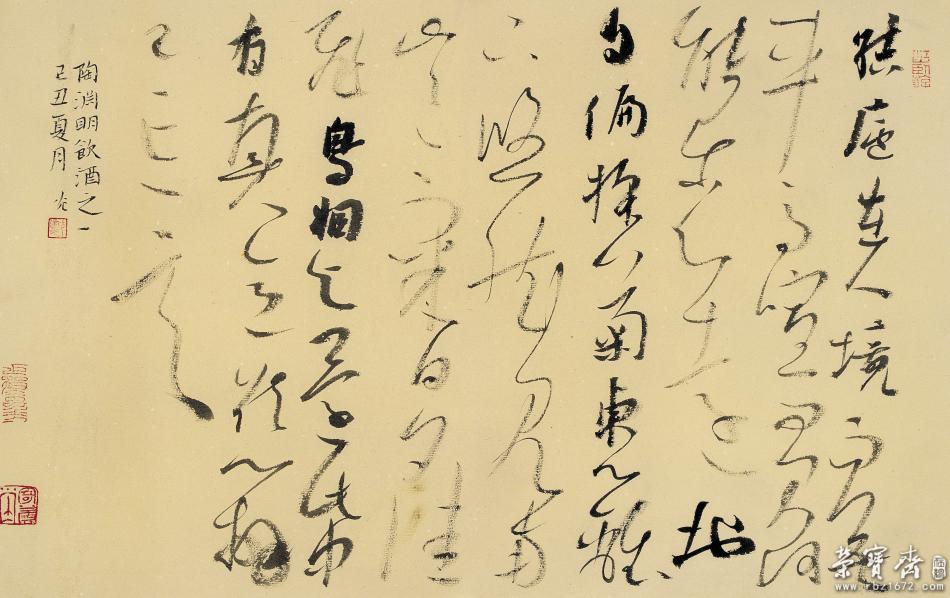 結廬在人境而無
車馬喧問君何
能爾心遠地
自偏採菊東籬
下悠然見南
山山氣日夕佳
飛鳥相與還此中
有真意欲辨
已忘言
陶淵明飲酒之一
己丑夏月
榮寶齋
www.rbz1672.com